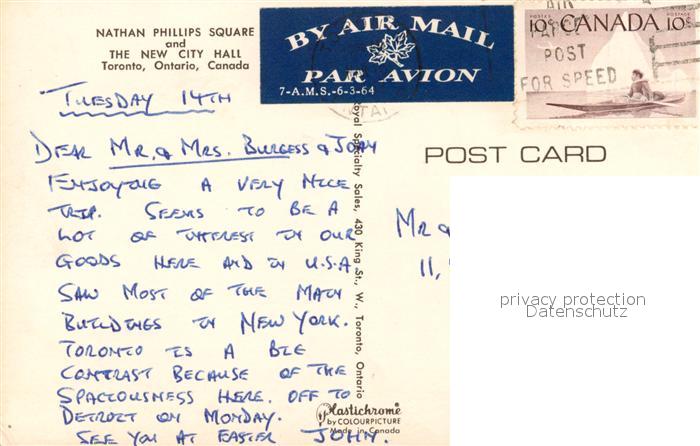 NATHAN PHILLIPS SQUARE
and
THE NEW CITY HALL
Toronto, Ontario, Canada
BY AIR MAIL
PAR AVION
7-A.M.S.-6-3-64
POSTES POSTAGE
10¢ CANADA 10¢
AIR
POST
FOR SPEED
TUESDAY 14TH
DEAR MR. & MRS. BURGESS & JOHN
ENJOYING A VERY NICE
TRIP. SEEMS TO BE A
LOT OF INTEREST IN OUR
GOODS HERE AND IN U.S.A
SAW MOST OF THE MAIN
BUILDINGS IN NEW YORK.
TORONTO IS A BIG
CONTRAST BECAUSE OF THE
SPACIOUSNESS HERE. OFF TO
DETROIT ON MONDAY.
SEE YOU AT EASTER JOHN.
Royal Specialty Sales, 430 King St., W., Toronto, Ontario
Plastichrome
by COLOURPICTURE
Made in Canada
POST CARD
MR &
11,
privacy protection
Datenschutz